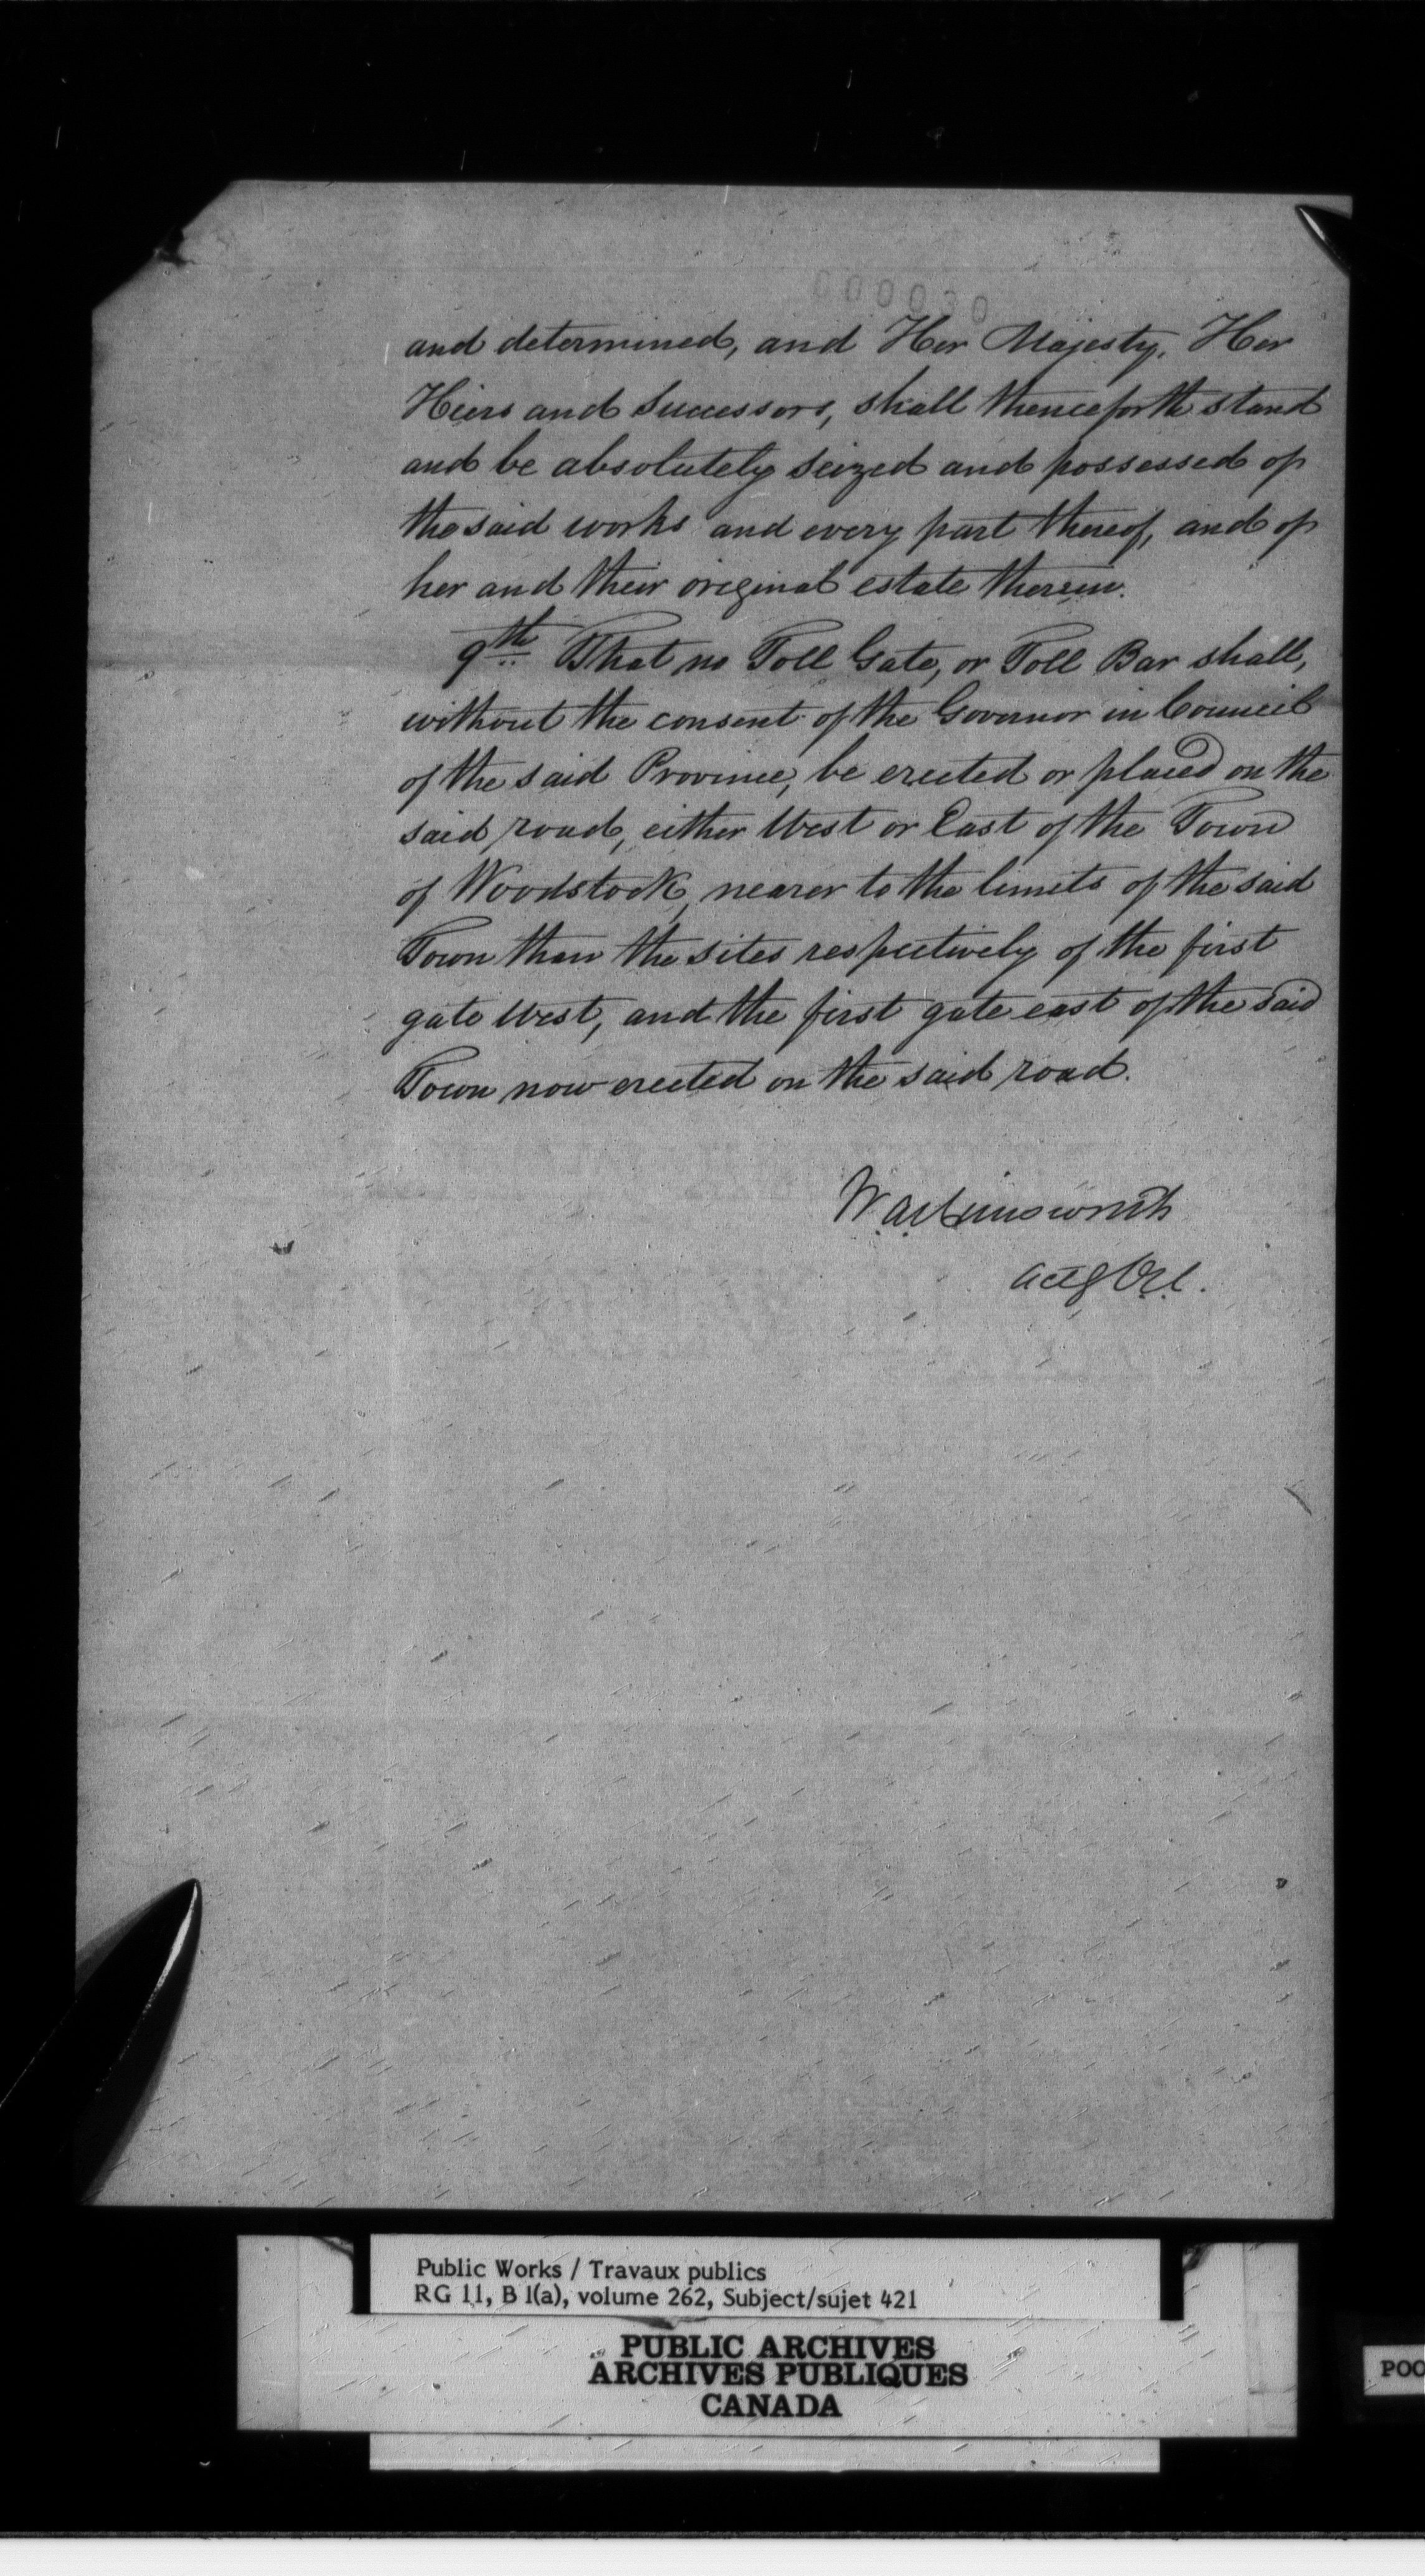 000030
and determined, and Her Majesty, Her
Heirs and Successors, shall thenceforth stand
and be absolutely seized and possessed of
the said works and every part thereof, and of
her and their original estate therein.
9th That no Toll Gate, or Toll Bar shall,
without the consent of the Governor in Council
of the said Province, be erected or placed on the
said road, either West or East of the Town
of Woodstock, nearer to the limits of the said
Town than the sites respectively of the first
gate West, and the first gate east of the said
Town now erected on the said road.
W. A. Himsworth
Actg C.E.C.
Public Works / Travaux publics
RG 11, B 1(a), volume 262, Subject/sujet 421
PUBLIC ARCHIVES
ARCHIVES PUBLIQUES
CANADA
POO